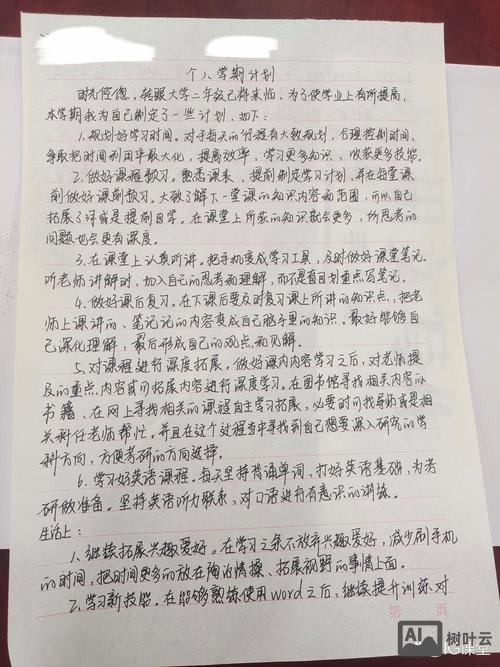 个人学期计划
时光倥偬，转眼大学二年级已将来临，为了使学业上有所提高，
本学期我为自己制定了一些计划，如下：
1.规划好学习时间。对于每天的行程有大致规划，合理控制时间，
争取把时间利用率最大化，提高效率，学习更多知识、收获更多技能。
2.做好课程预习。熟悉课表、提前制定学习计划，并在每堂课
前做好课前预习。大致了解下一堂课的知识内容和范围，可以自己
拓展了详或是提前自学。在课堂上所获的知识就会更多，所思考的
问题也会更有深度。
3.在课堂上认真听讲。把手机变成学习工具，及时做好课堂笔记。
听老师讲解时，加入自己的思考和理解，而不是盲目划重点写笔记。
4.做好课后复习。在下课后要及时复习课上所讲的知识点，把老
师上课讲的、笔记记的内容变成自己脑子里的知识。最好能够自
己深化理解，最后形成自己的观点和见解。
5.对课程进行深度拓展。做好课内内容学习之后，对老师提
及的重点内容或可拓展内容进行深度学习。在图书馆寻找相关内容的
书籍、在网上寻找相关的课程自主学习拓展，必要时可找导师或是相
关科任老师帮忙。并且在这个过程当中寻找到自己想要深入研究的学
科方向，方便考研的方向选择。
6.学习好英语课程。每天坚持背诵单词，打好英语基础，为考
研做准备。坚持英语听力联系，对口语进行有意识的训练。
生活上：
1.继续拓展兴趣爱好。在学习之余不放弃兴趣爱好，减少刷手机
的时间，把时间更多的放在陶冶情操、拓展视野的事情上面。
2.学习新技能。在能够熟练使用word之后，继续提升训练对
第 页
AI 树叶云